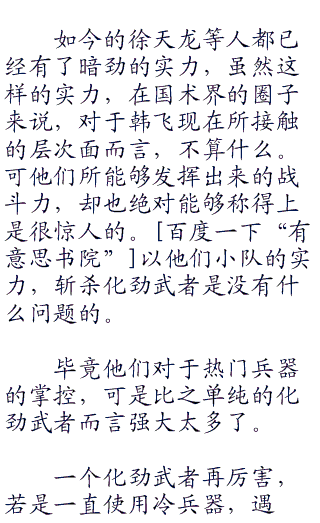 如今的徐天龙等人都已
经有了暗劲的实力，虽然这
样的实力，在国术界的圈子
来说，对于韩飞现在所接触
的层次面而言，不算什么。
可他们所能够发挥出来的战
斗力，却也绝对能够称得上
是很惊人的。[百度一下“有
意思书院”]以他们小队的实
力，斩杀化劲武者是没有什
么问题的。
毕竟他们对于热门兵器
的掌控，可是比之单纯的化
劲武者而言强大太多了。
一个化劲武者再厉害，
若是一直使用冷兵器，遇